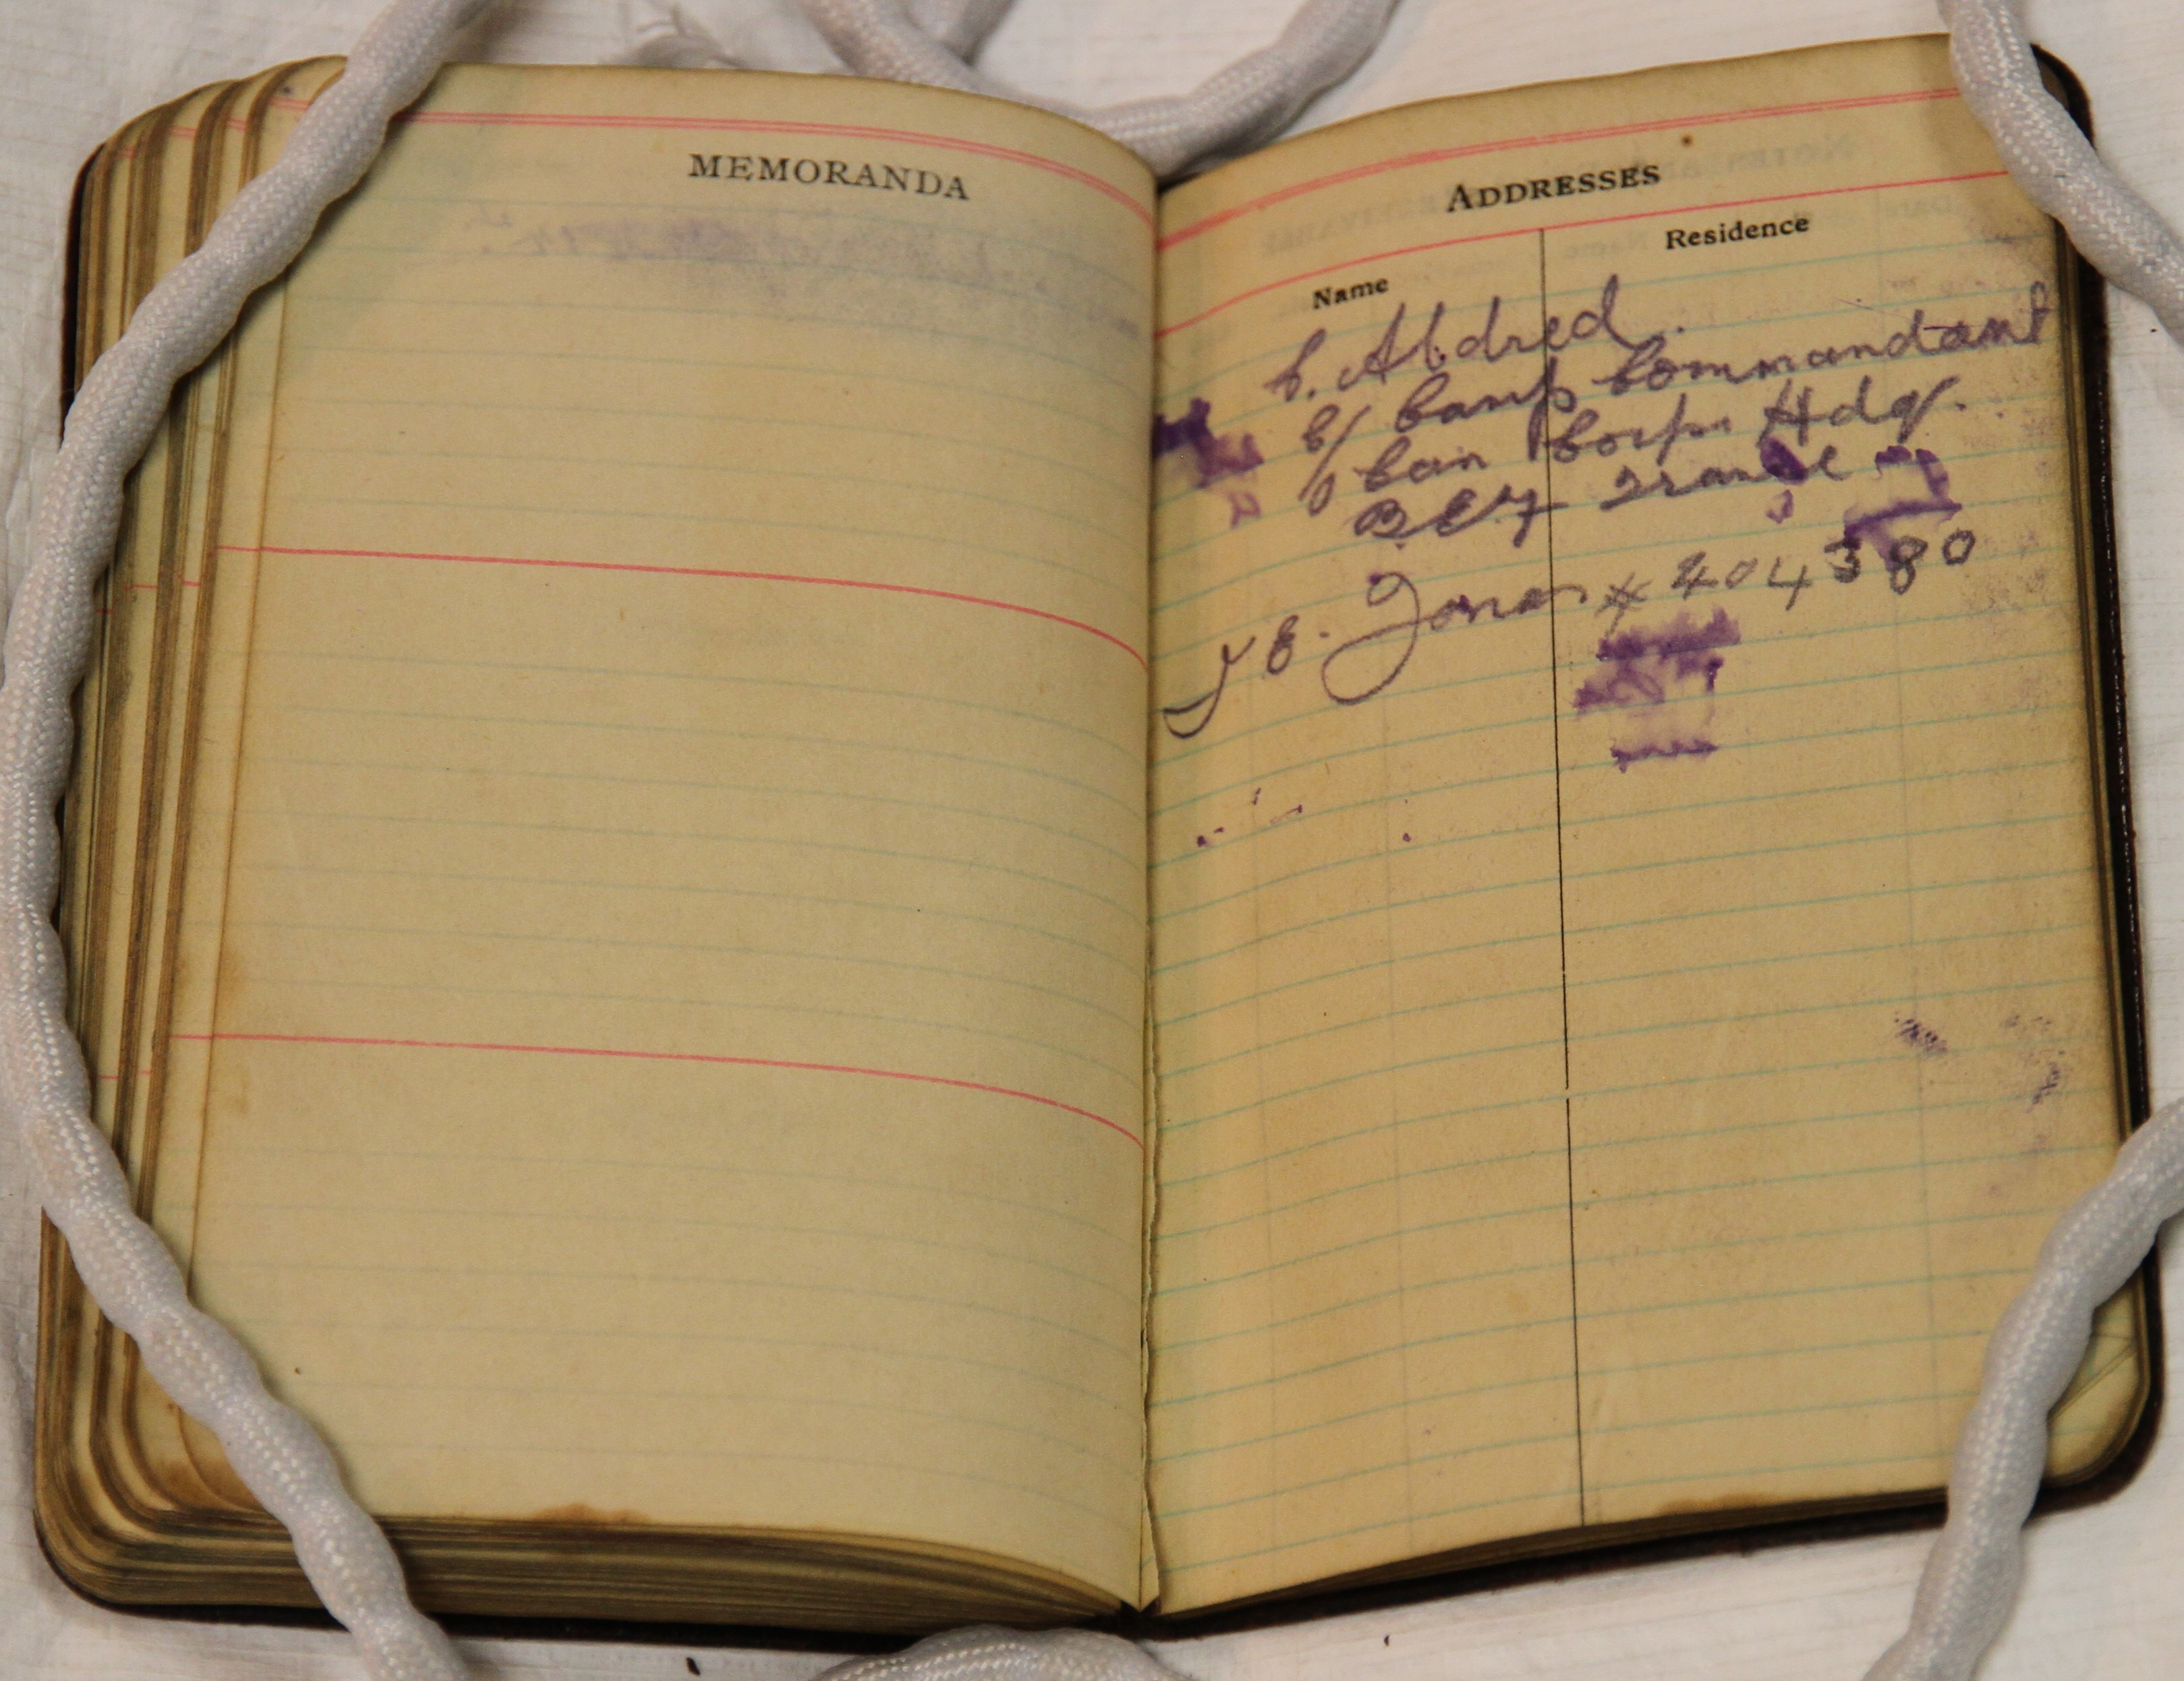 MEMORANDA
ADDRESSES
Name Residence
C. Aldred.
C/o Camp Commandant
Can Corps Hdq.
B.E.F. France
J E. Jones # 404380